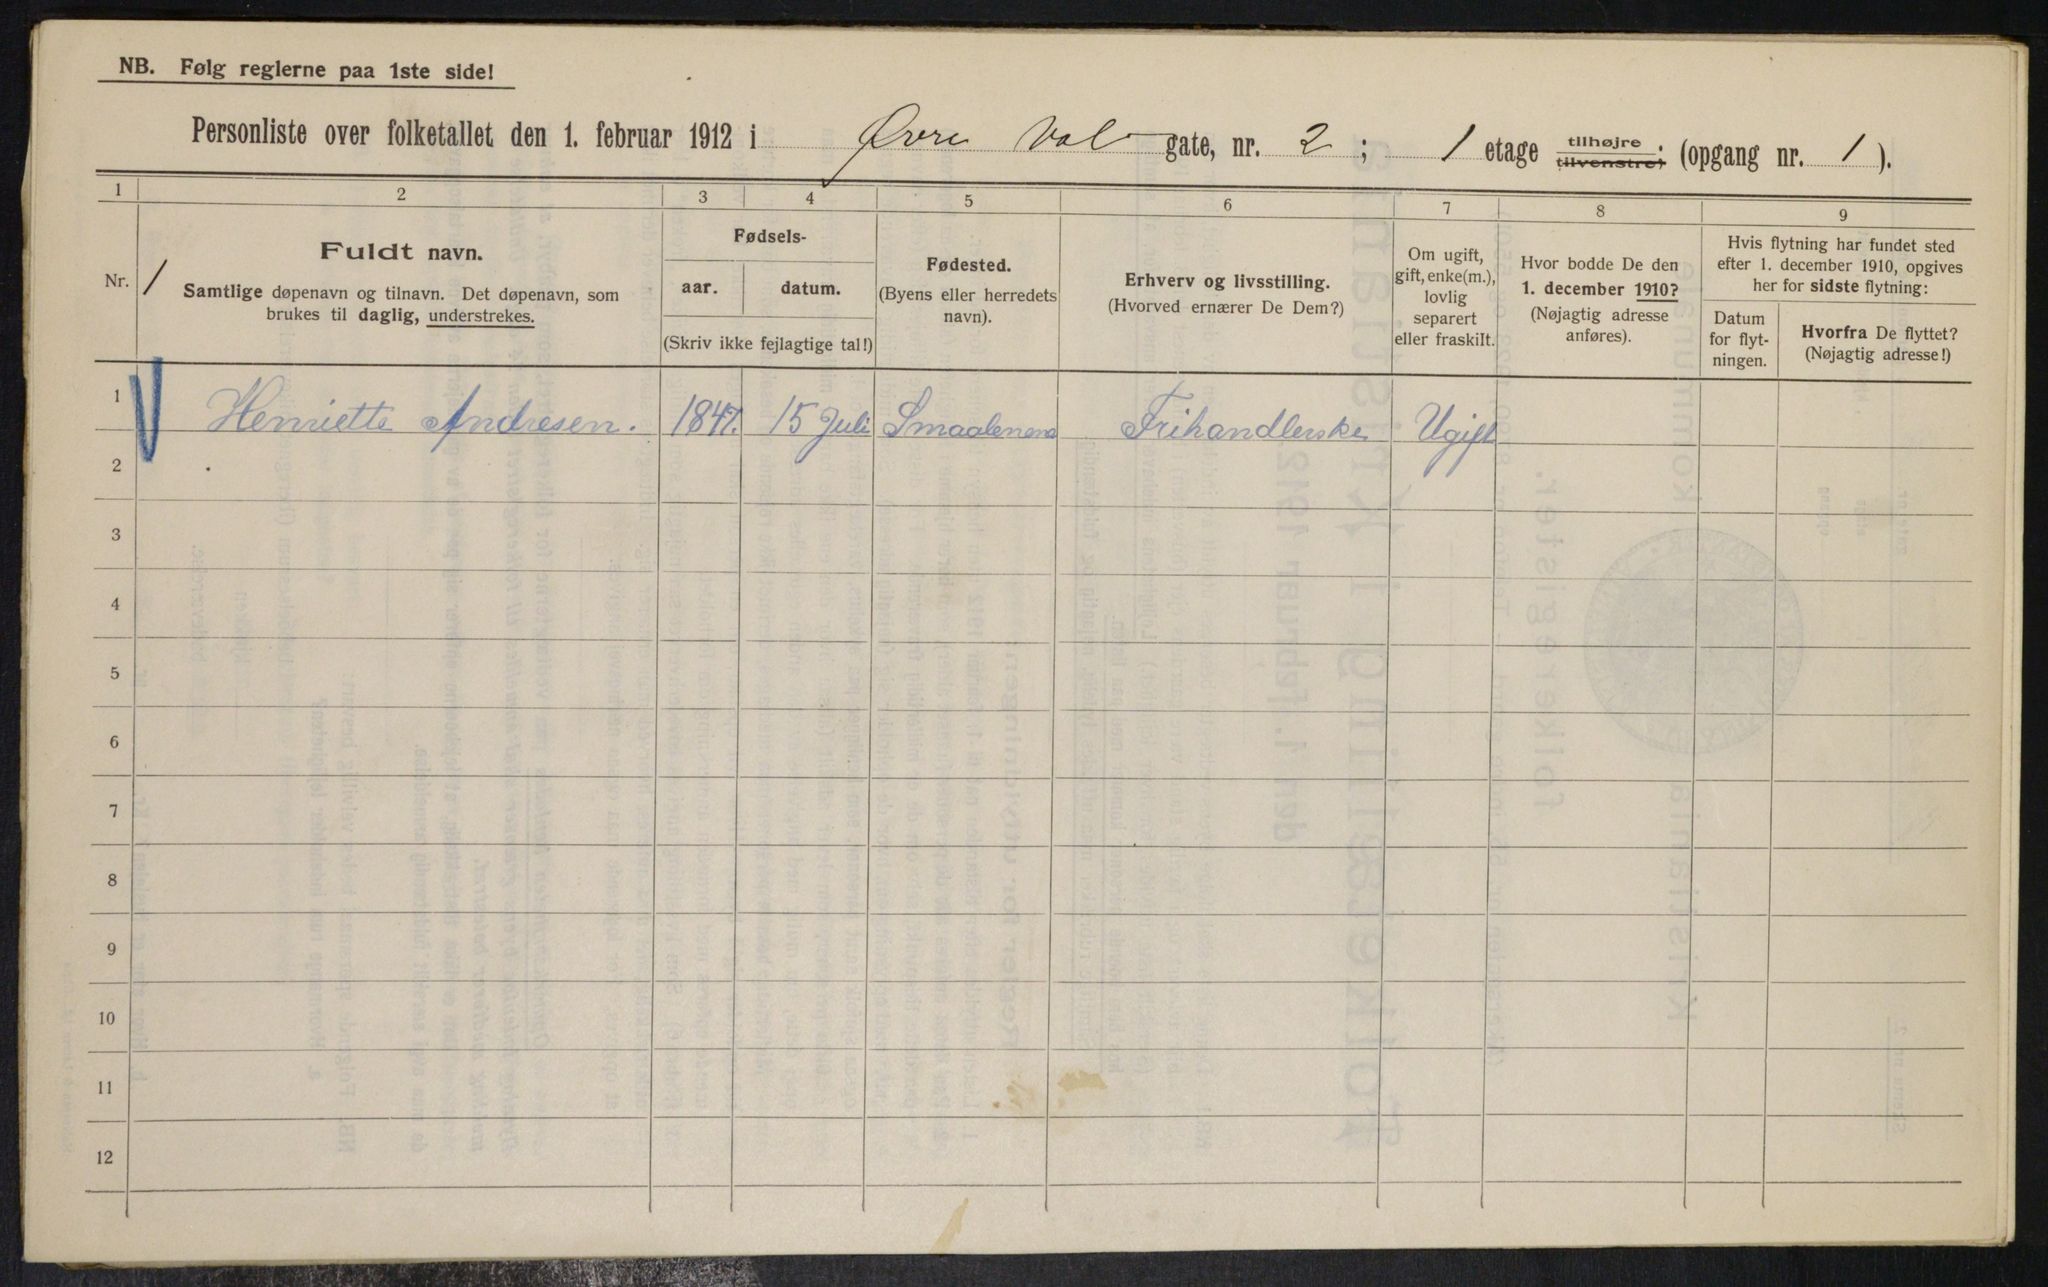 NB. Følg reglerne paa 1ste side!
Personliste over folketallet den 1. februar 1912 i Øvre Vol gate, nr. 2 ; 1 etage tilhøjre tilvenstre, (opgang nr. 1 ).
1 2 3 4 5 6 7 8 9
Nr. 1
Fuldt navn.
Samtlige døpenavn og tilnavn. Det døpenavn, som
brukes til daglig, understrekes.
Fødsels-
aar. datum.
(Skriv ikke fejlagtige tal!)
Fødested.
(Byens eller herredets
navn).
Erhverv og livsstilling.
(Hvorved ernærer De Dem?)
Om ugift,
gift, enke(m.),
lovlig
separert
eller fraskilt.
Hvor bodde De den
1. december 1910?
(Nøjagtig adresse
anføres).
Hvis flytning har fundet sted
efter 1. december 1910, opgives
her for sidste flytning:
Datum
for flyt-
ningen.
Hvorfra De flyttet?
(Nøjagtig adresse!)
1 Henriette Andresen. 1847. 15 Juli Smaalenene Frihandlerske Ugift
2
3
4
5
6
7
8
9
10
11
12